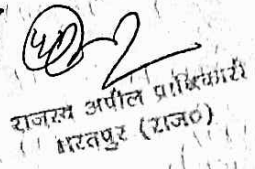 राजस्व अपील प्राधिकारी
भरतपुर (राज०)